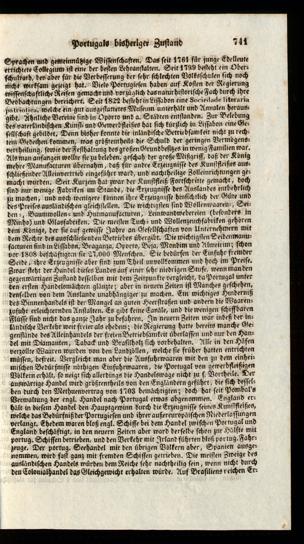 Portugals bisheriger Zustand 741
Sprachen und gemeinnützige Wissenschaften. Das seit 1761 für junge Edelleute
errichtete Collegium ist eine der besten Lehranstalten. Seit 1799 besteht ein Ober-
schulrath, der aber für die Verbesserung der sehr schlechten Volksschulen sich noch
nicht wirksam gezeigt hat. Viele Portugiesen haben auf Kosten der Regierung
wissenschaftliche Reisen gemacht und vorzüglich das naturhistorische Fach durch ihre
Beobachtungen bereichert. Seit 1822 besteht in Lissabon eine Sociedade literaria
patriotica, welche ein gut ausgestattetes Museum unterhält und Annalen heraus-
gibt. Ähnliche Vereine sind in Oporto und a. Städten entstanden. Zur Belebung
des vaterländischen Kunst- und Gewerbfleißes hat sich in Lissabon eine Ge-
sellschaft gebildet. Denn bisher konnte die inländische Betriebsamkeit nicht zu rech-
tem Gedeihen kommen, was größtentheils die Schuld der ungerechten Vermögens-
vertheilung, sowie der Festhaltung des großen Grundbesitzes in wenig Familien war.
Als man anfangen wollte sie zu beleben, geschah der große Mißgriff, daß der König
mehre Manufacturen übernahm, daß für andre Erzeugnisse des Kunstfleißes aus-
schließender Alleinvertrieb eingeführt ward, und nachtheilige Zolleinrichtungen ge-
macht wurden. Seit Kurzem hat zwar der Kunstfleiß Fortschritte gemacht, doch
sind nur wenige Fabriken im Stande, die Erzeugnisse des Auslandes entbehrlich
zu machen, und noch wenigere können ihre Erzeugnisse hinsichtlich der Güte und
des Preises ausländischen gleichstellen. Die wichtigsten sind Wollenwaaren-, Sei-
den-, Baumwollen- und Hutmanufacturen, Leinwandwebereien (besonders in
Minho) und Glasfabriken. Die meisten Tuch- und Wollenzeuchfabriken gehören
dem König, der sie auf gewisse Jahre an Gesellschaften von Unternehmern mit
dem Rechte des ausschließenden Betriebes übergibt. Die wichtigsten Seidenmanu-
facturen sind in Lissabon, Braganza, Oporto, Beja, Mondim und Almeirim; schon
vor 1808 beschäftigten sie 27,000 Menschen. Sie bedürfen der Einfuhr fremder
Seide, ihre Erzeugnisse aber sind zum Theil unvollkommen und hoch im Preise.
Zwar steht der Handel dieses Landes auf einer sehr niedrigen Stufe, wenn man den
gegenwärtigen Zustand desselben mit dem Zeitpunkte vergleicht, da Portugal unter
den ersten Handelsmächten glänzte; aber in neuern Zeiten ist Manches geschehen,
denselben von dem Auslande unabhängiger zu machen. Ein wichtiges Hinderniß
des Binnenhandels ist der Mangel an guten Heerstraßen und andern die Waaren-
zufuhr erleichternden Anstalten. Es gibt keine Canäle, und die wenigen schiffbaren
Flüsse sind nicht das ganze Jahr zu beschiffen. In neuern Zeiten war indeß der in-
ländische Verkehr weit freier als ehedem; die Regierung hatte bereits manche Ge-
genstände des Alleinhandels der freien Betriebsamkeit überlassen und nur den Han-
del mit Diamanten, Taback und Brasilholz sich vorbehalten. Alle in den Häfen
verzollte Waaren wurden von den Landzöllen, welche sie früher hatten entrichten
müssen, befreit. Vergleicht man aber die Ausfuhrwaaren mit den zu dem einhei-
mischen Bedürfnisse nöthigen Einfuhrwaaren, die Portugal von gewerbfleißigen
Völkern erhält, so neigt allerdings die Handelswage nicht zu s. Vortheile. Der
auswärtige Handel wird größtentheils von den Engländern geführt, die sich dessel-
ben durch den Methuenvertrag von 1703 bemächtigten; doch hat seit Pombal's
Verwaltung der engl. Handel nach Portugal etwas abgenommen. England er-
hält in diesem Handel den Hauptgewinn durch die Erzeugnisse seines Kunstfleißes,
welche das Bedürfniß der Portugiesen und ihrer außereuropäischen Niederlassungen
verlangt. Ehedem waren bloß engl. Schiffe bei dem Handel zwischen Portugal und
England beschäftigt, in den neuern Zeiten aber ward derselbe schon zur Hälfte mit
portug. Schiffen betrieben, und den Verkehr mit Irland führten bloß portug. Fahr-
zeuge. Der portug. Seehandel mit den übrigen Völkern aber, Spanien ausge-
nommen, wird fast ganz mit fremden Schiffen getrieben. Die meisten Zweige des
ausländischen Handels würden dem Reiche sehr nachtheilig sein, wenn nicht durch
den Colonialhandel das Gleichgewicht erhalten würde. Auf Brasiliens reichen Er-